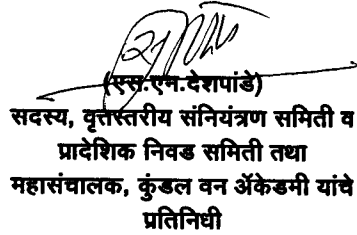 (एस.एन.देशपांडे)
सदस्य, वृत्तस्तरीय संनियंत्रण समिती व
प्रादेशिक निवड समिती तथा
महासंचालक, कुंडल वन ॲकेडमी यांचे
प्रतिनिधी